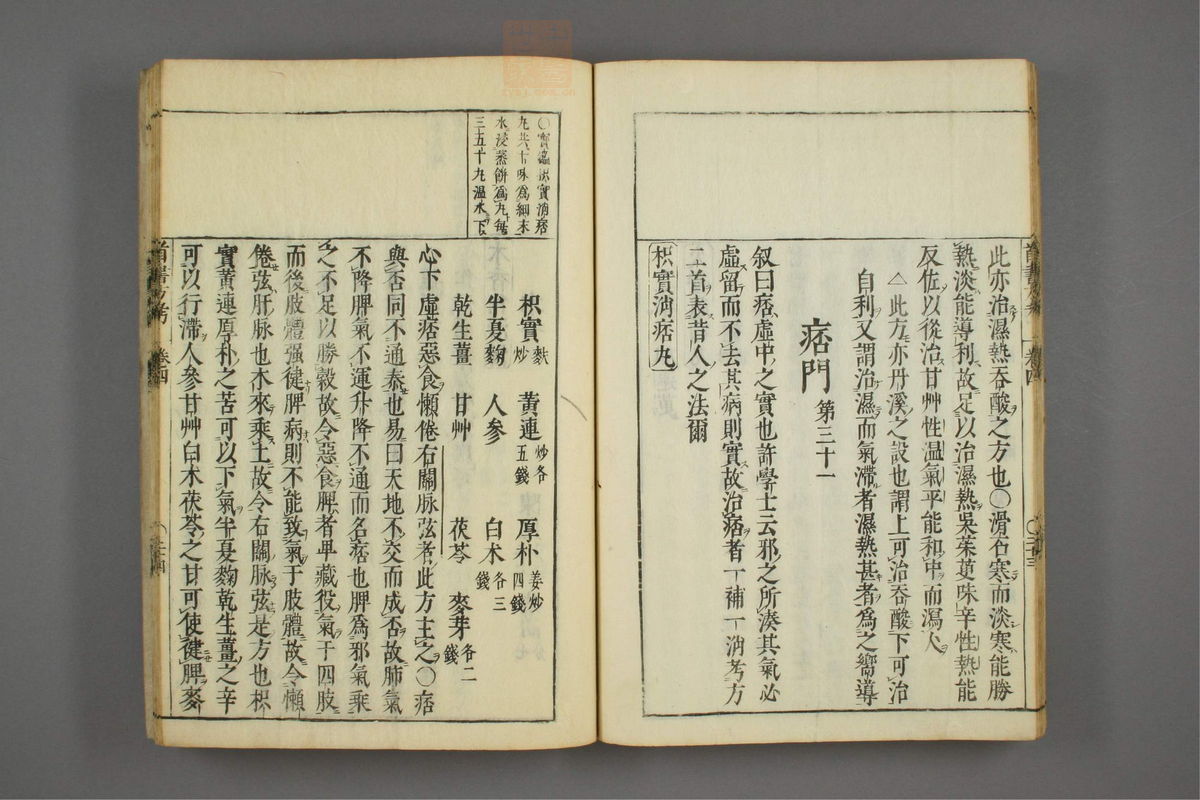 此亦治濕熱吞酸之方也○滑石寒而淡寒能勝
熱淡能導利故足以治濕熱吳茱萸味辛性熱能
反佐以從治甘艸性温氣平能和中而瀉火
△此方亦丹溪之設也謂上可治吞酸下可治
自利又謂治濕而氣滯者濕熱甚者為之嚮導
痞門第三十一
叙曰痞虛中之實也許學士云邪之所湊其氣必
虛留而不去其病則實故治痞者一補一消考方
二首表昔人之法爾
枳實消痞丸
○寶鑑枳實消痞
丸共十味為細末
水浸蒸餅為丸每
三五十丸温水下
枳實麩炒 黃連炒各五錢 厚朴姜炒四錢
半夏麴 人參 白朮各三錢
乾生薑 甘艸 茯苓 麥芽各二錢
心下虛痞惡食懶倦右關脉弦者此方主之○痞
與否同不通泰也易曰天地不交而成否故肺氣
不降脾氣不運升降不通而名痞也脾為邪氣乘
之不足以勝穀故令惡食脾者卑藏役氣于四肢
而後肢體强健脾病則不能致氣于肢體故令懶
倦弦肝脉也木來乘土故令右關脉弦是方也枳
實黃連厚朴之苦可以下氣半夏麴乾生薑之辛
可以行滯人參甘艸白朮茯苓之甘可使健脾麥
卷四
卷四